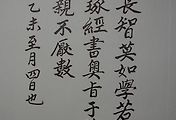 長智英如學若
琢經書奥旨于
親不厭數
乙未至月四日也